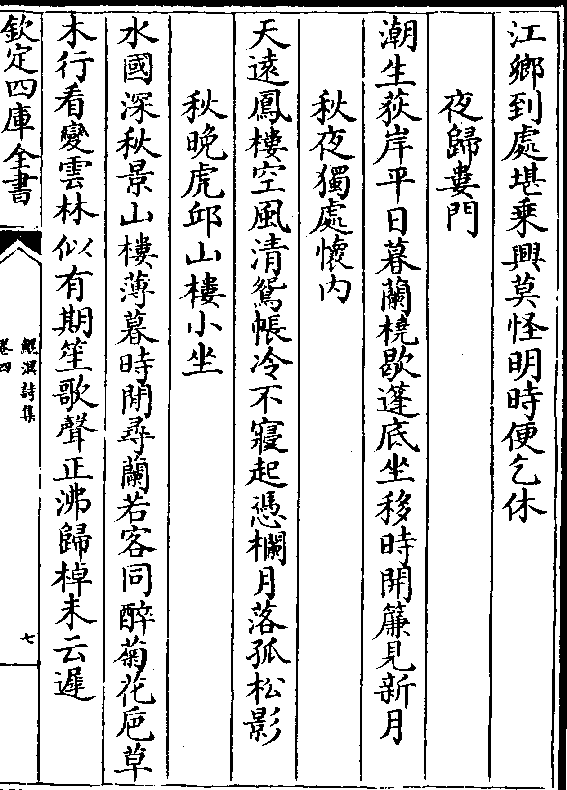 江鄉到處堪乘興莫怪明時便乞休
夜歸婁門
潮生荻岸平日暮蘭橈歇蓬底坐移時開簾見新月
秋夜獨處懷內
天遠鳳樓空風清鴛帳冷不寢起憑欄月落孤松影
秋晚虎邱山樓小坐
水國深秋景山樓薄暮時閒尋蘭若客同醉菊花巵草
木行看變雲林似有期笙歌聲正沸歸棹未云遲
欽定四庫全書
鯤溟詩集
卷四
七